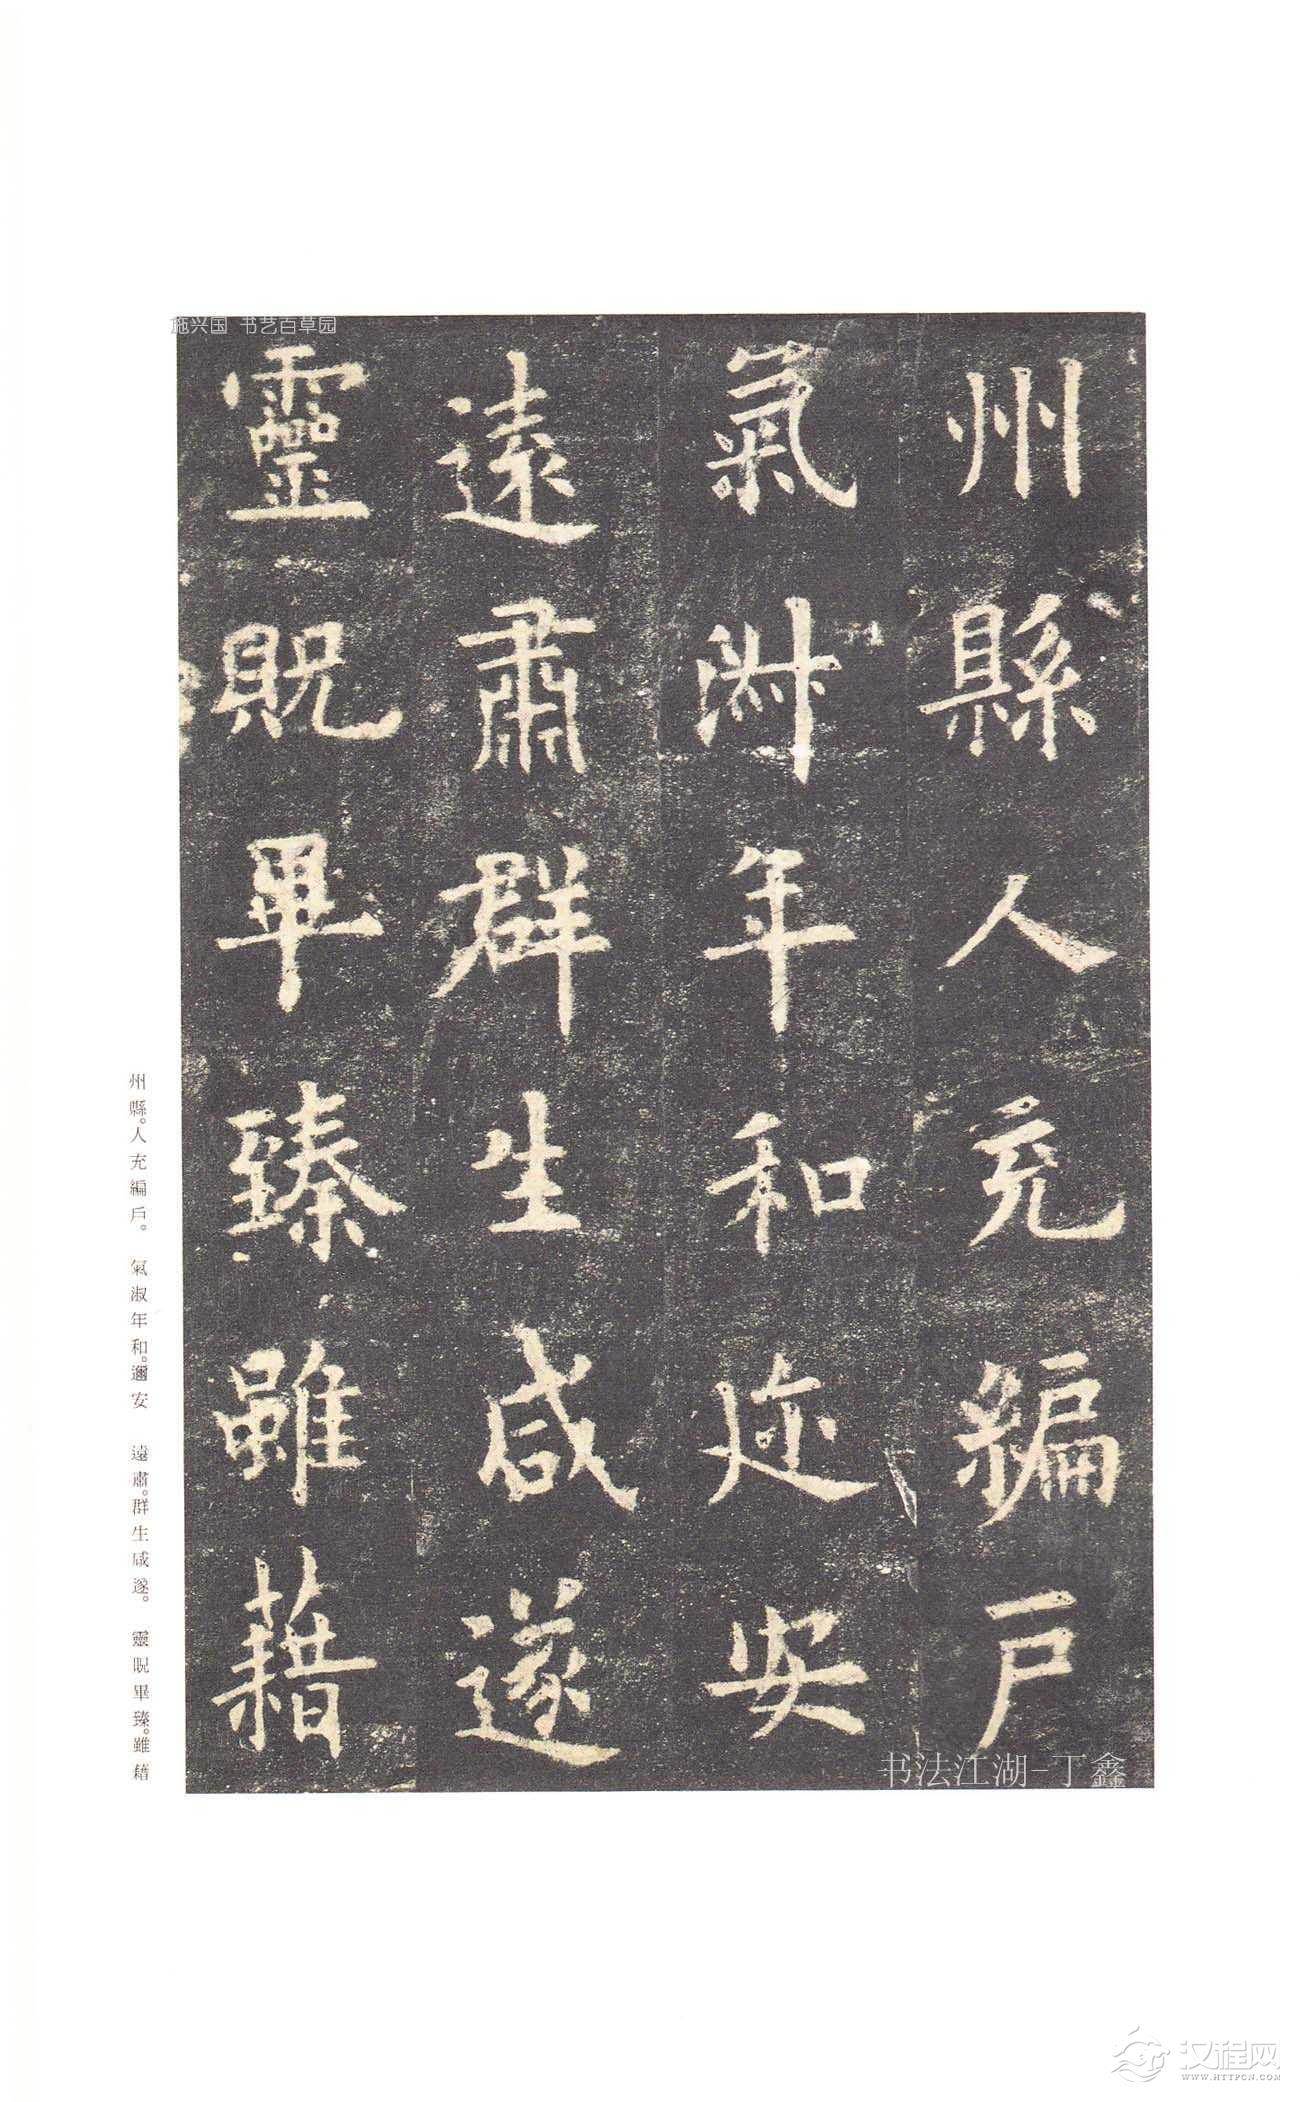 施兴国 书艺百草园
州縣人充編戶
氣淑年和迩安
遠肅群生咸遂
靈貺畢臻雖藉
州縣。人充編戶。 氣淑年和。邇安 遠肅。群生咸遂。 靈貺畢臻。雖藉
书法江湖-丁鑫
汉程网
WWW.HTTPCN.COM